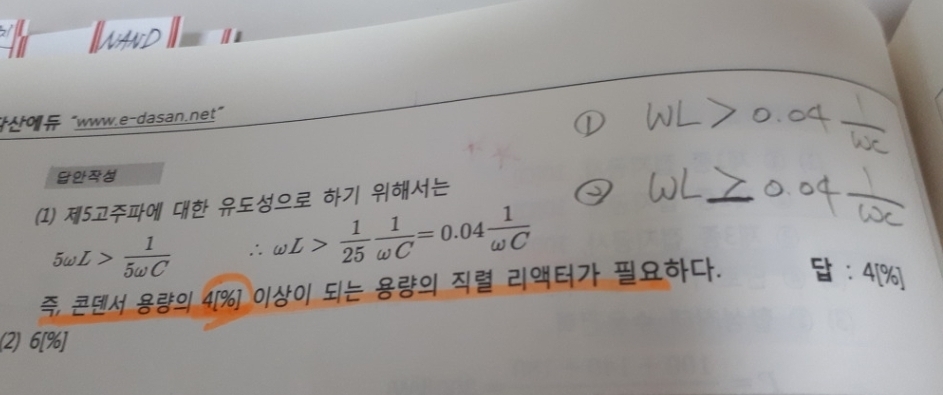 NAND
산에듀 "www.e-dasan.net"
① WL > 0.04 1/WC
② WL ≥ 0.04 1/WC
답안작성
(1) 제5고주파에 대한 유도성으로 하기 위해서는
5ωL > 1/5ωC ∴ ωL > 1/25 1/ωC = 0.04 1/ωC
즉, 콘덴서 용량의 4[%] 이상이 되는 용량의 직렬 리액터가 필요하다. 답 : 4[%]
(2) 6[%]